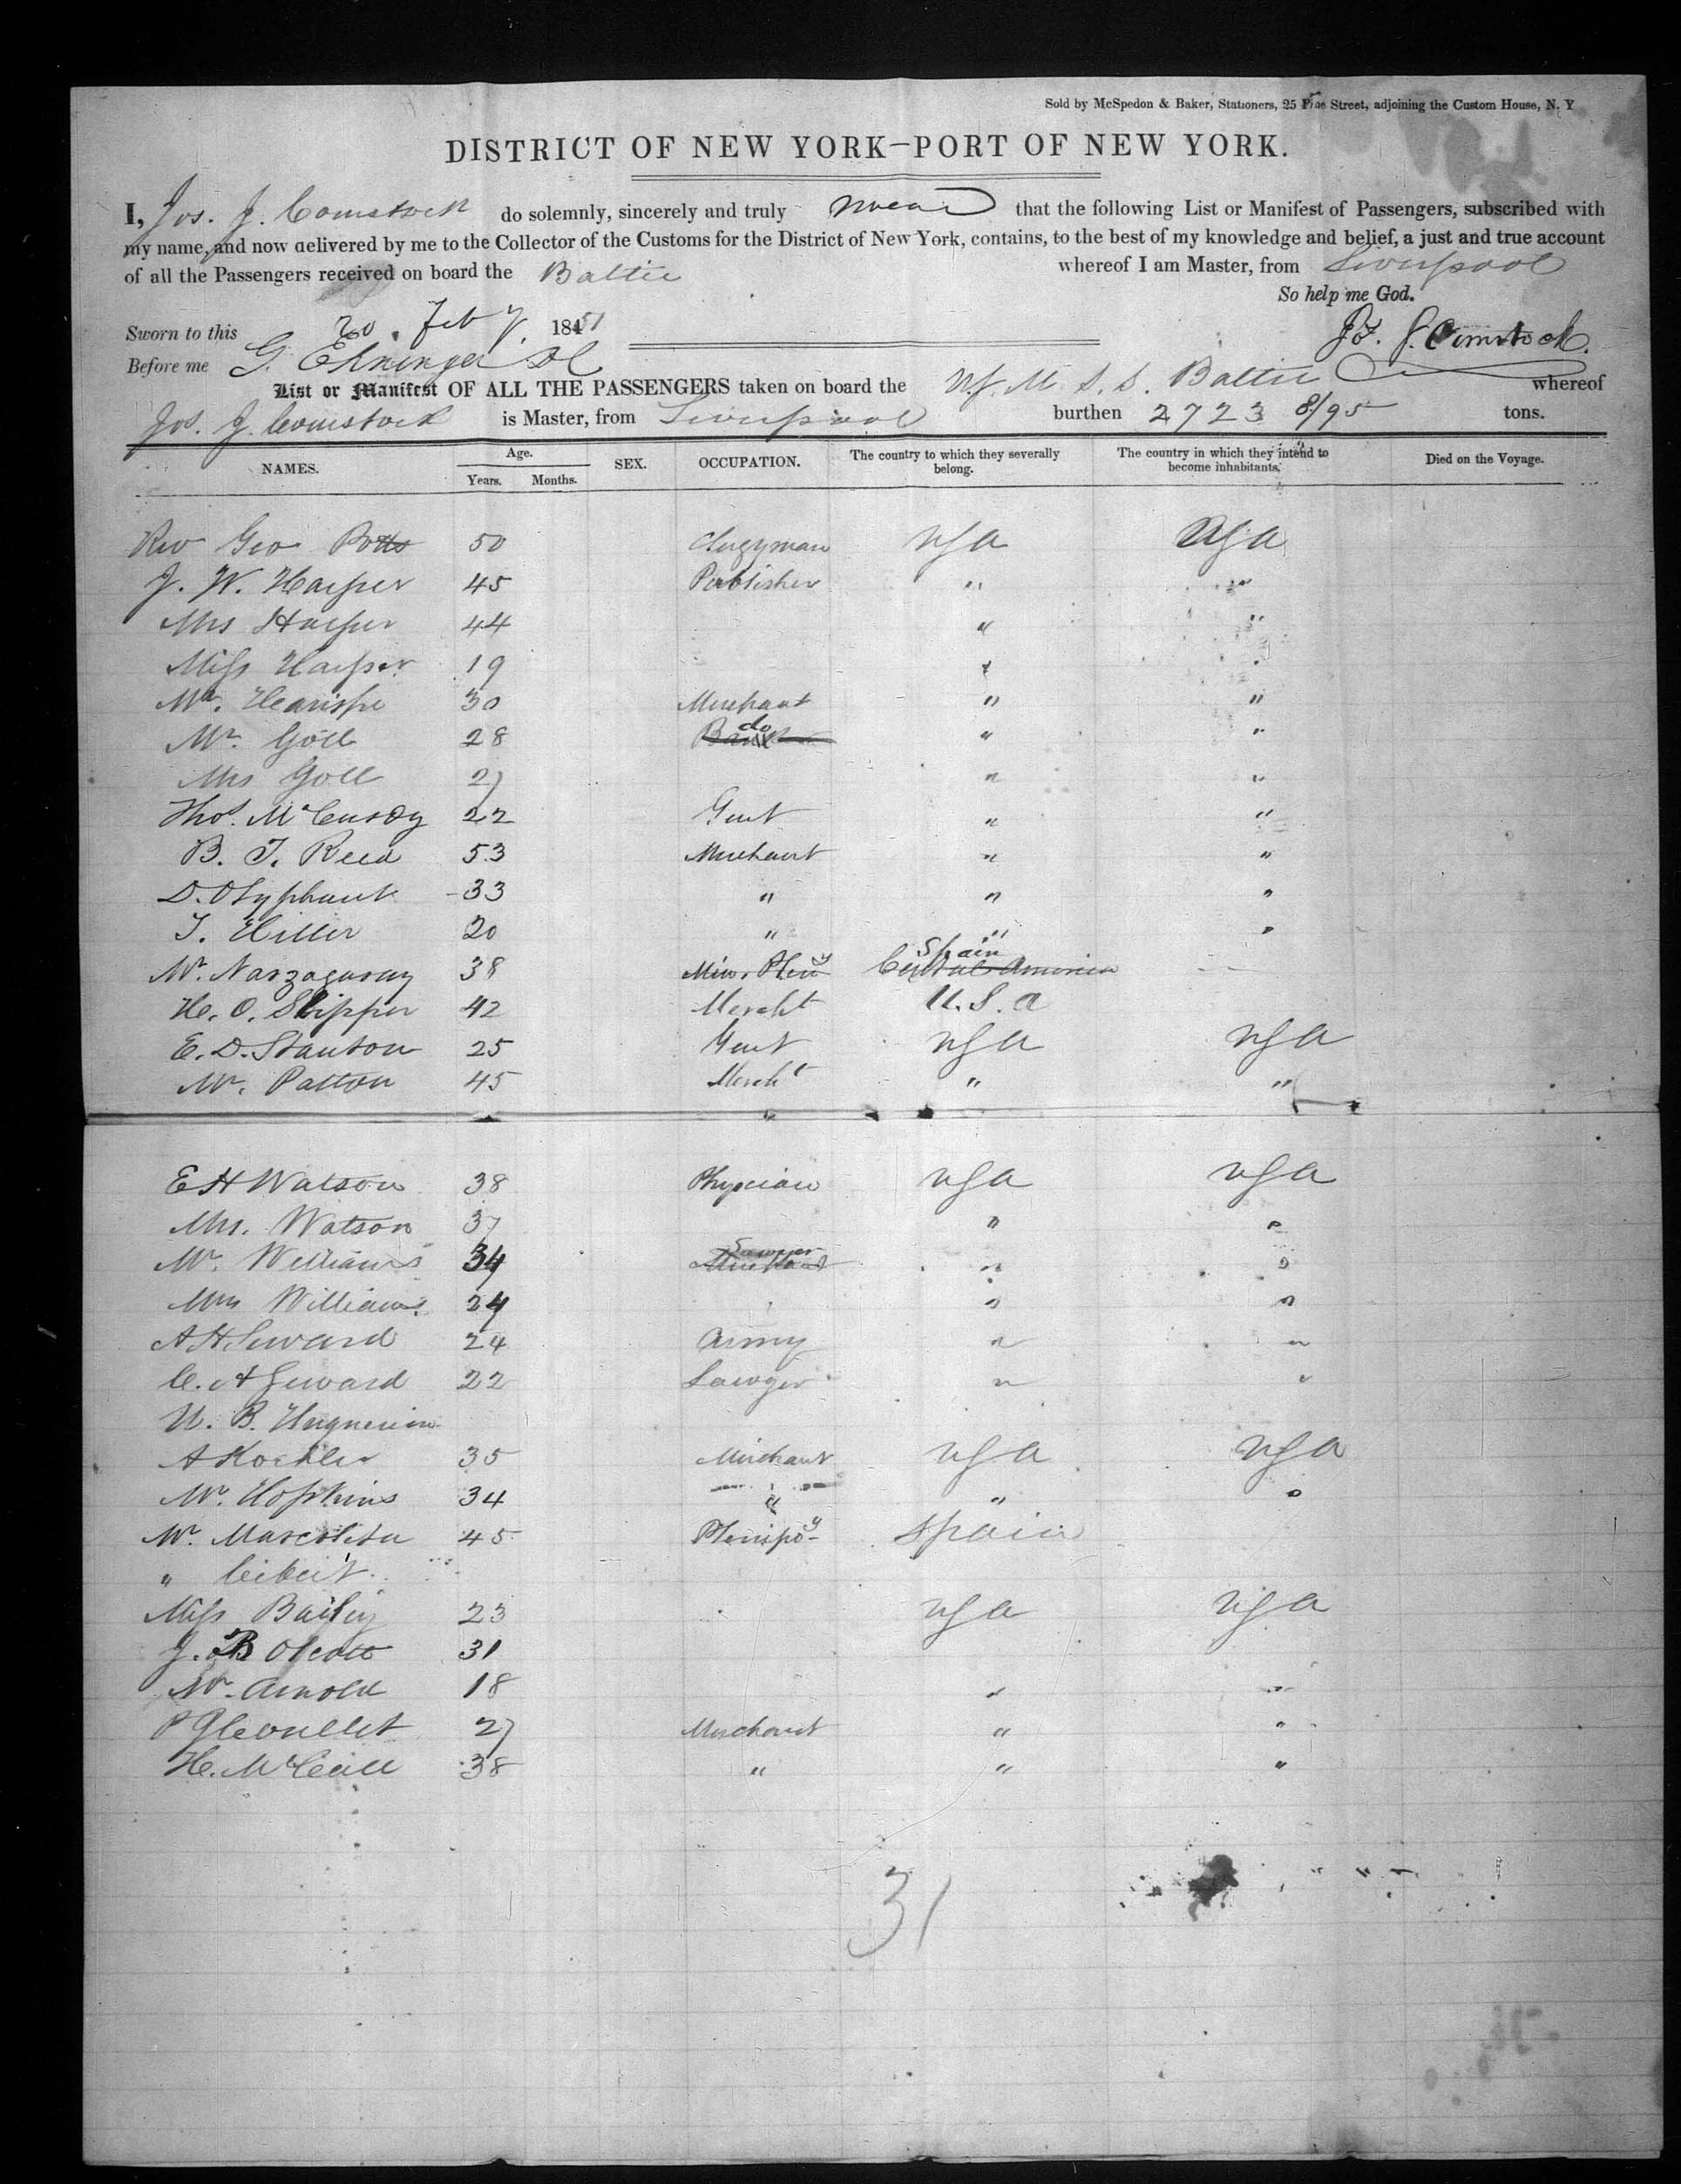 Sold by McSpedon & Baker, Stationers, 25 Pine Street, adjoining the Custom House, N. Y
DISTRICT OF NEW YORK—PORT OF NEW YORK.
I, Jos. J. Comstock do solemnly, sincerely and truly swear that the following List or Manifest of Passengers, subscribed with
my name, and now delivered by me to the Collector of the Customs for the District of New York, contains, to the best of my knowledge and belief, a just and true account
of all the Passengers received on board the Baltic whereof I am Master, from Liverpool
So help me God.
Sworn to this 20 Feby 1851
Jos. J. Comstock.
Before me G. Ehninger
List or Manifest OF ALL THE PASSENGERS taken on board the U.S.M.S.S. Baltic whereof
Jos. J. Comstock is Master, from Liverpool burthen 2723 8/95 tons.
NAMES. Age. Years. Months. SEX. OCCUPATION. The country to which they severally belong. The country in which they intend to become inhabitants. Died on the Voyage.
Rev Geo Potts 50 Clergyman USA USA
J. W. Harper 45 Publisher " "
Mrs Harper 44 " "
Miss Harper 19 " "
Mr. 30 Merchant " "
Mr. Goll 28 do " "
Mrs Goll 27 " "
Thos. McCurdy 22 Gent " "
B. T. Reed 53 Merchant " "
D. Olyphant 33 " " "
T. Hiller 20 " " "
Mr. Narzagaray 38 Min. Pleny Spain Central America
H. O. Slipper 42 Mercht U.S.a
E. D. Stanton 25 Gent USA USA
Mr. Patton 45 Mercht " "
"
E H Watson 38 Physcian USA USA
Mrs. Watson 37 " "
Mr. Williams 34 Lawyer Merchant " "
Mrs Williams 24 " "
A H Seward 24 Army " "
C. A Seward 22 Lawyer " "
U. B.
A Koehler 35 Merchant USA USA
Mr. Hopkins 34 " " "
Mr. 45 Plenipoy Spain
"
Miss Bailey 23 USA USA
J. B Olcott 31
Mr. Arnold 18 " "
P 27 Merchant " "
H. McCall 38 " " "
31